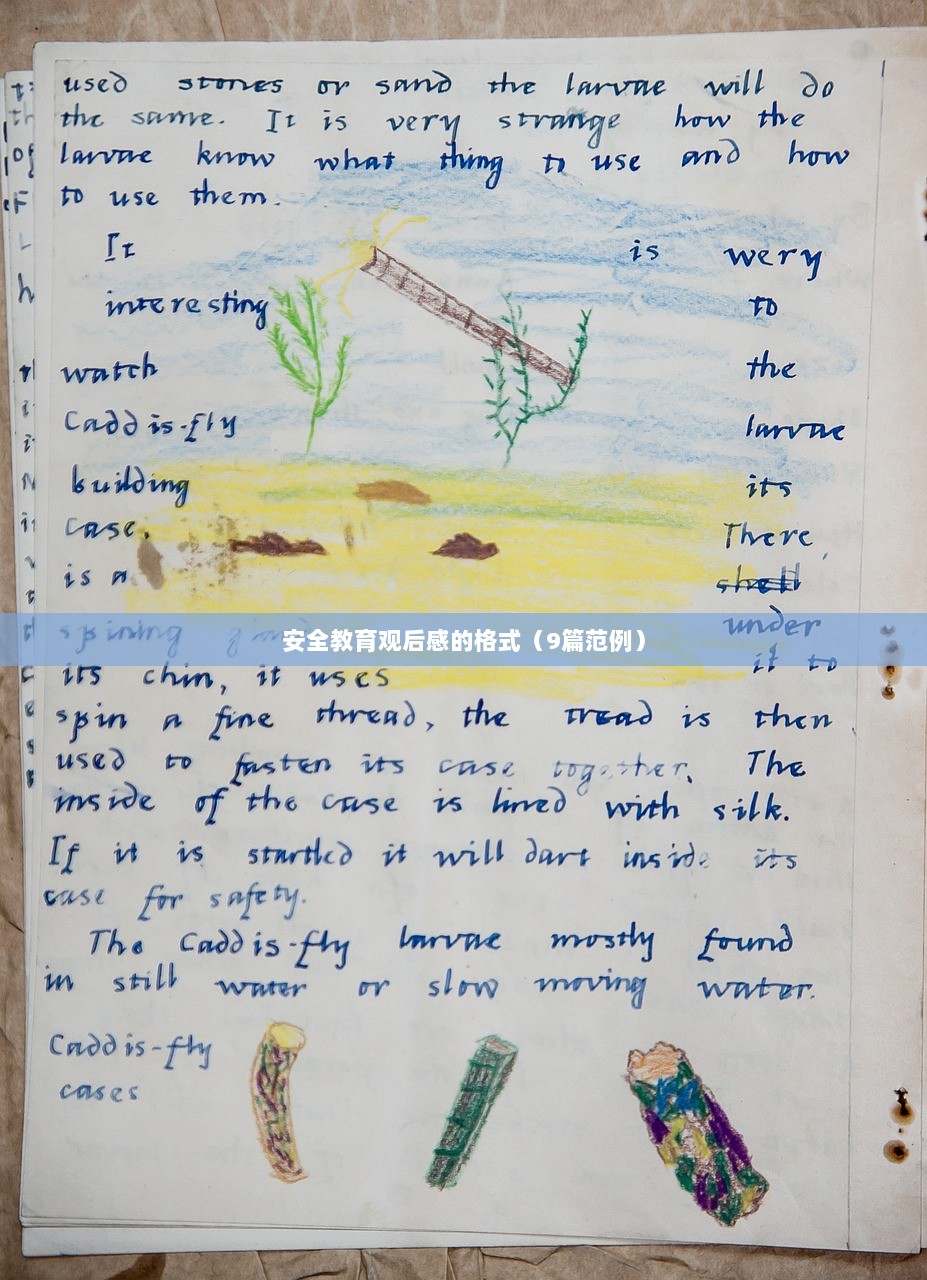 used stones or sand the larvae will do
the same. It is very strange how the
larvae know what thing to use and how
to use them.
It is wery
interesting to
watch the
Caddis-fly larvae
building its
case. There
is a shell
spining gland under
安全教育观后感的格式（9篇范例）
its chin, it uses it to
spin a fine thread, the tread is then
used to fasten its case together. The
inside of the case is lined with silk.
If it is startled it will dart inside its
case for safety.
The Caddis-fly larvae mostly found
in still water or slow moving water.
Caddis-fly
cases